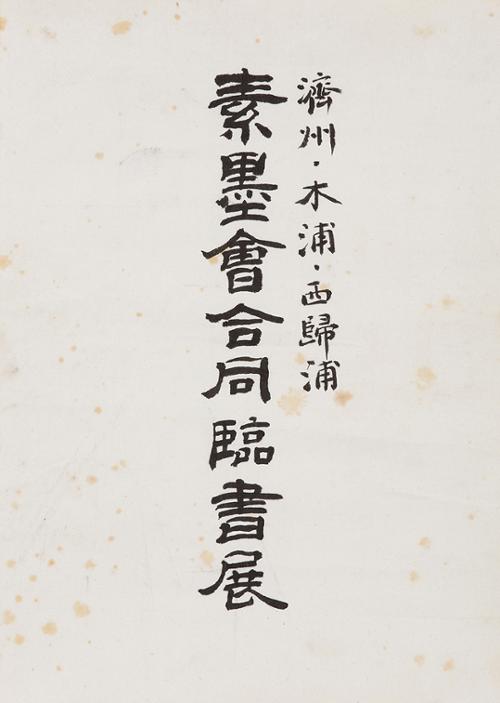 濟州·木浦·西歸浦
素墨會合同臨書展